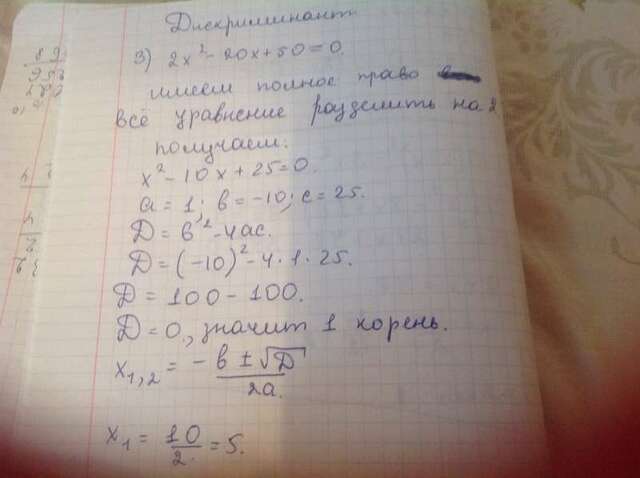 Дискриминант
3) 2x² - 20x + 50 = 0.
имеем полное право
всё уравнение разделить на 2
получаем:
x² - 10x + 25 = 0.
a = 1; b = -10; c = 25.
Д = b² - 4ac.
Д = (-10)² - 4 · 1 · 25.
Д = 100 - 100.
Д = 0, значит 1 корень.
x₁,₂ = - b ± √Д / 2a.
x₁ = 10/2 = 5.